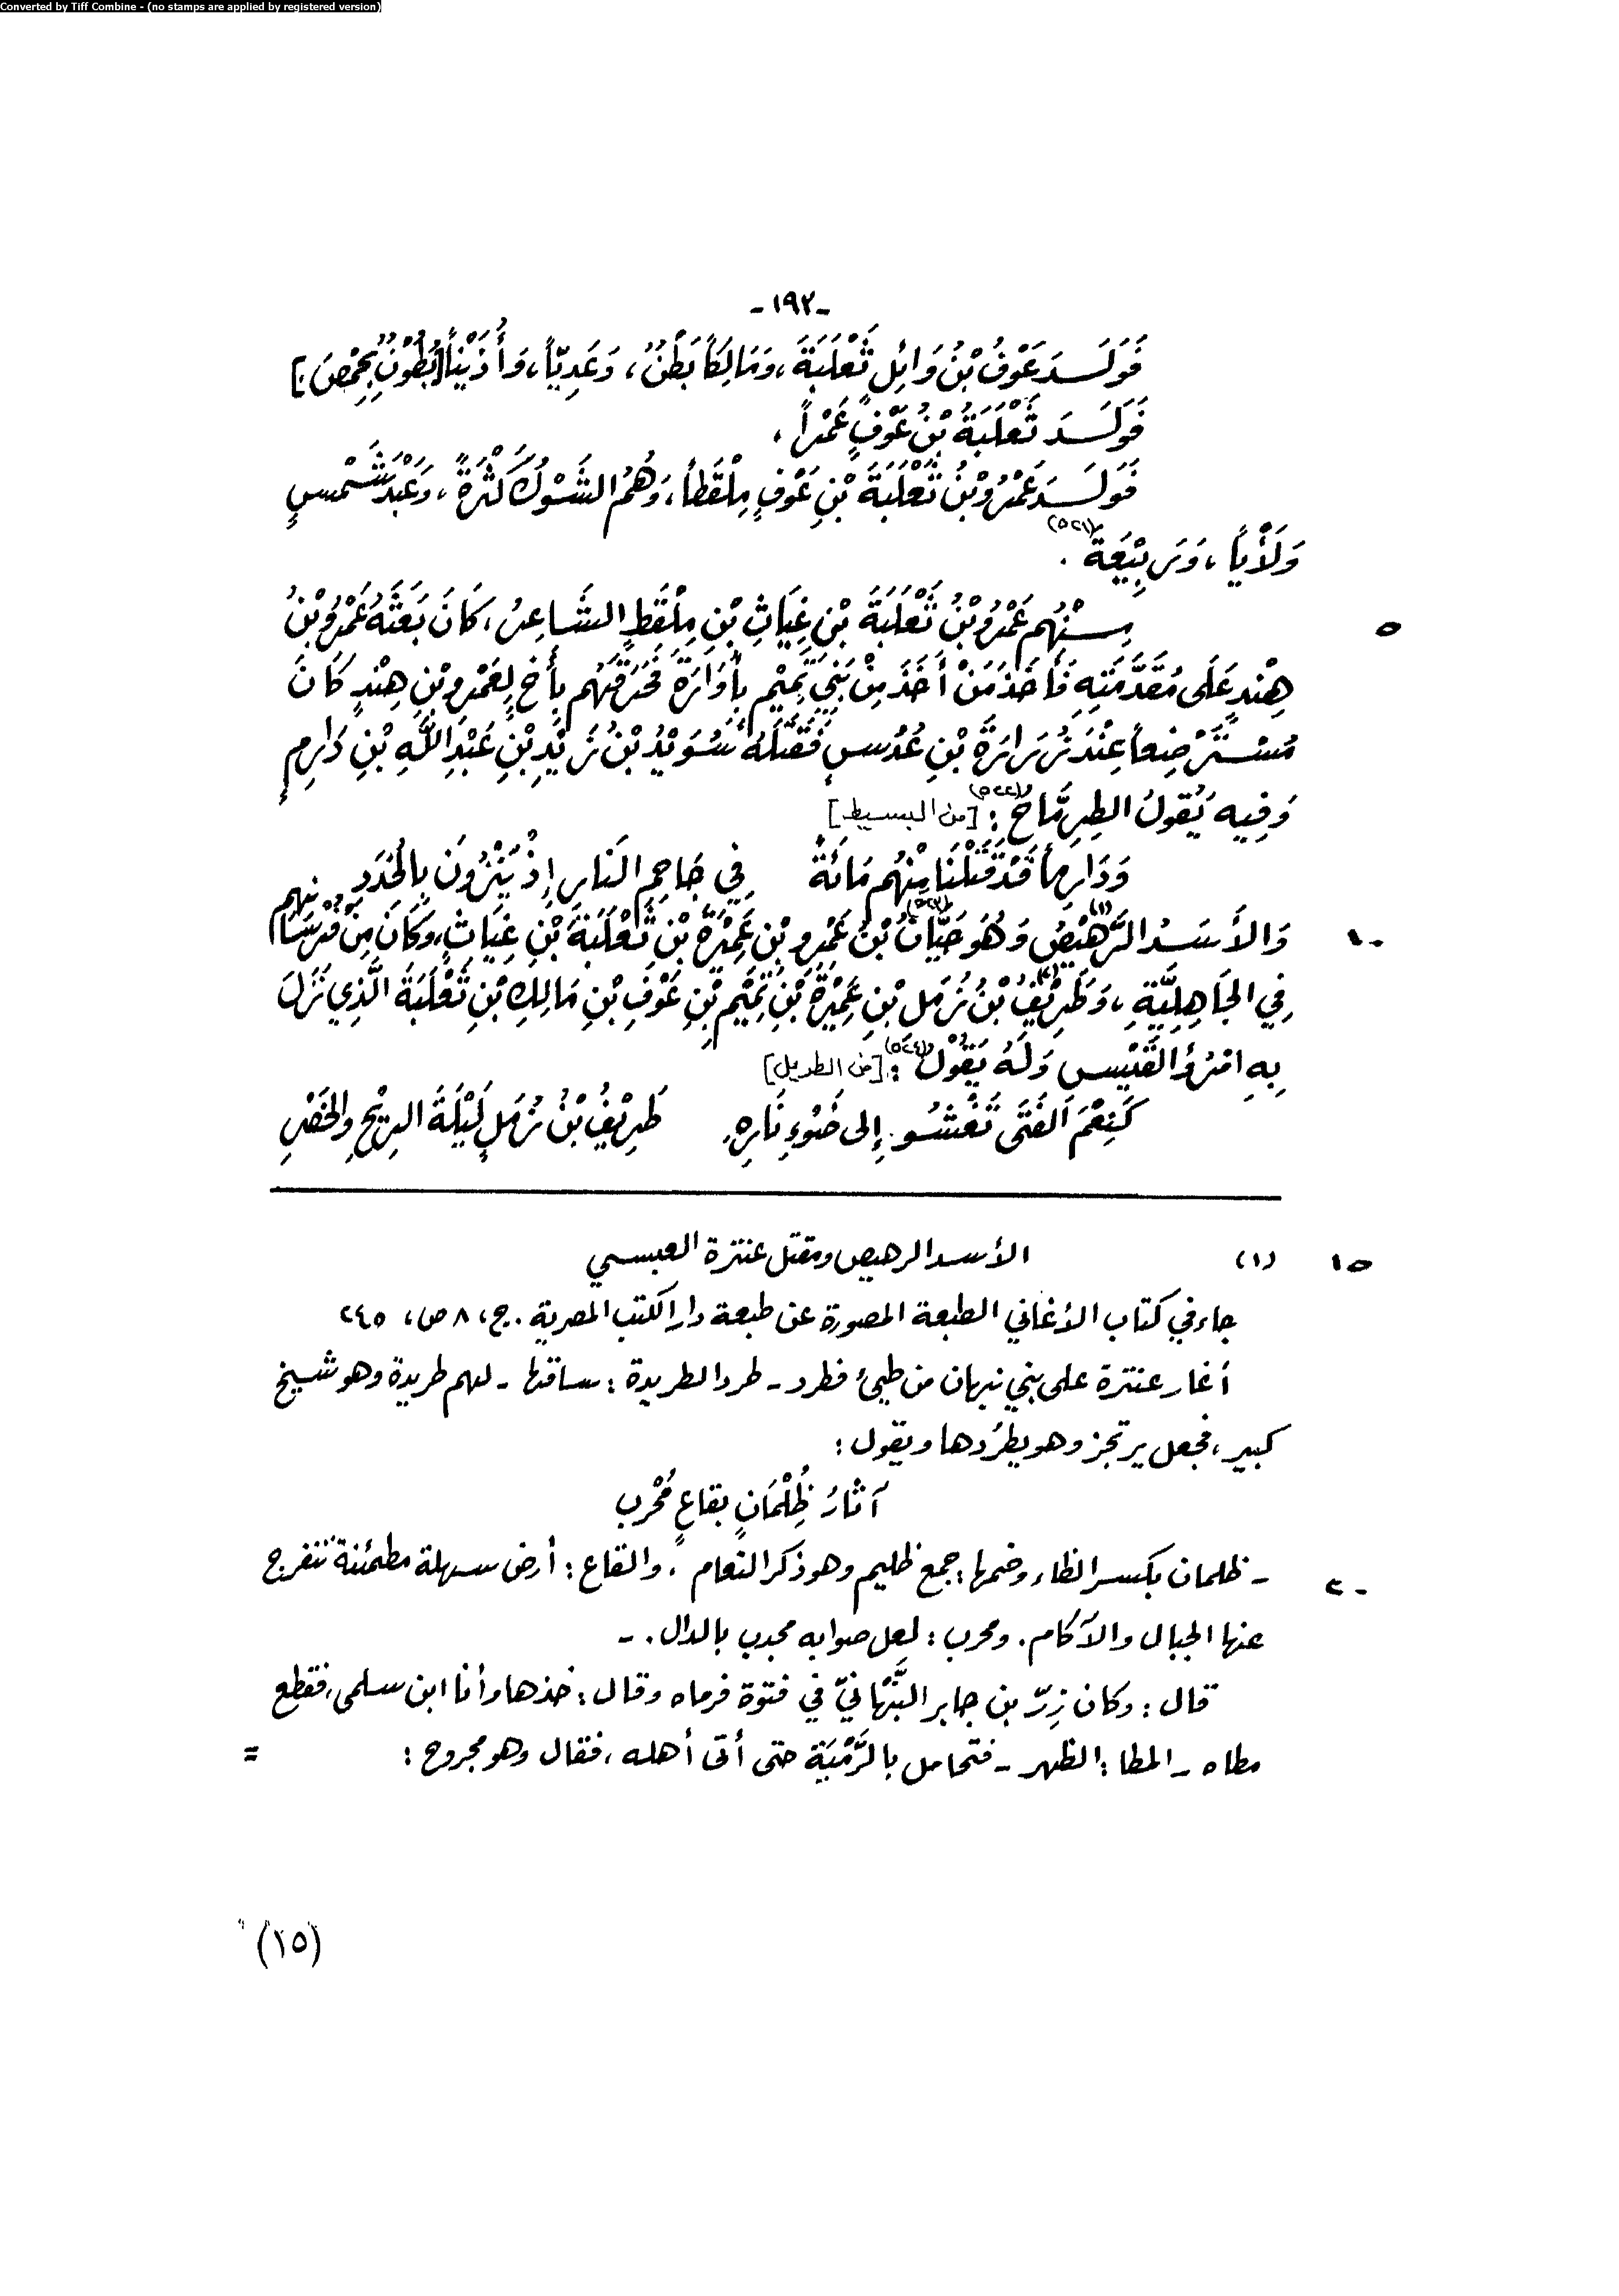 Converted by Tiff Combine - (no stamps are applied by registered version)
-١٩٢-
فَوَلَدَ عَوْفُ بْنُ وَائِلٍ ثَعْلَبَةَ، وَمَالِكاً بَطْنٌ، وَعَدِيّاً، وَأُذَيْناً [بُطُوْنٌ بِحِمْصَ.]
فَوَلَدَ ثَعْلَبَةُ بْنُ عَوْفٍ عَمْراً،
فَوَلَدَ عَمْرُو بْنُ ثَعْلَبَةَ بْنِ عَوْفٍ مِلْقَطاً، وَهُمُ الشَّوْكُ كَثْرَةً، وَعَبْدَ شَمْسٍ
وَلَأْياً، وَرَبِيْعَةَ (٥٢١).
٥ مِنْهُم عَمْرُو بْنُ ثَعْلَبَةَ بْنِ غِيَاثِ بْنِ مِلْقَطٍ الشَّاعِرُ، كَانَ بَعَثَهُ عَمْرُو بْنُ
هِنْدٍ عَلَى مُقَدَّمَتِهِ فَأَخَذَ مَنْ أَخَذَ مِنْ بَنِي تَمِيْمٍ بِأُوَارَةَ فَحَرَّقَهُم بِأَخٍ لِعَمْرِو بْنِ هِنْدٍ كَانَ
مُسْتَرْضِعاً عِنْدَ زُرَارَةَ بْنِ عُدُسٍ فَقَتَلَهُ سُوَيْدُ بْنُ زَيْدِ بْنِ عَبْدِ اللَّهِ بْنِ دَارِمٍ
وَفِيهِ يَقُولُ الطِرِمَّاحُ (٥٢٢): [من البسيط]
وَدَارِماً قَدْ قَتَلْنَا مِنْهُم مَائَةً في جَاحِمِ النَارِ إِذْ يَنْزُونَ بِالْخُدَدِ
١٠ وَالأَسَدُ الرَّهِيْصُ (١) وَهُوَ حَيَّانُ (٥٢٣) بْنُ عَمْرِو بْنِ عَمِيْرَةَ بْنِ ثَعْلَبَةَ بْنِ غِيَاثٍ، وَكَانَ مِنْ فُرْسَانِهِم
فِي الجَاهِلِيَّةِ، وَطَرِيْفُ (٢) بْنُ مَلِ بْنِ عَمِيْرَةَ بْنِ تَمِيْمِ بْنِ عَوْفِ بْنِ مَالِكِ بْنِ ثَعْلَبَةَ الَّذِي نَزَلَ
بِهِ امْرُؤُ القَيْسِ وَلَهُ يَقُوْلُ (٥٢٤): [من الطويل]
لَنِعْمَ الفَتَى تَعْشُو إِلى ضَوْءِ نَارِهِ طَرِيْفُ بْنُ مَلٍ لَيْلَةَ الرِيْحِ والخَصَرِ
١٥ (١) الأسد الرهيص ومقتل عنترة العبسي
جاء في كتاب الأغاني الطبعة المصورة عن طبعة دار الكتب المصرية. ج، ٨ ص، ٢٤٥
أغار عنترة على بني نبهان من طيئ فطرد - طرد الطريدة: ساقها - لهم طريدة وهو شيخ
كبير، فجعل يرتجز وهو يطرُدها ويقول:
آثارُ ظِلْمَانٍ بقاعٍ مُحْرب
٢٠ - ظلمان بكسر الظاء وضمها: جمع ظليم وهو ذكر النعام، والقاع: أرض سهلة مطمئنة تنفرج
عنها الجبال والآكام. ومحرب: لعل صوابه مجدب بالدال. -
قال: وكان زِرّ بن جابر النَّبْهَانيّ في فتوة فرماه وقال: خذها وأنا ابن سلمى، فقطع
مطاه - المطا: الظهر - فتحامل بالرَّمْيَة حتى أتى أهله، فقال وهو مجروح: =
(١٥)